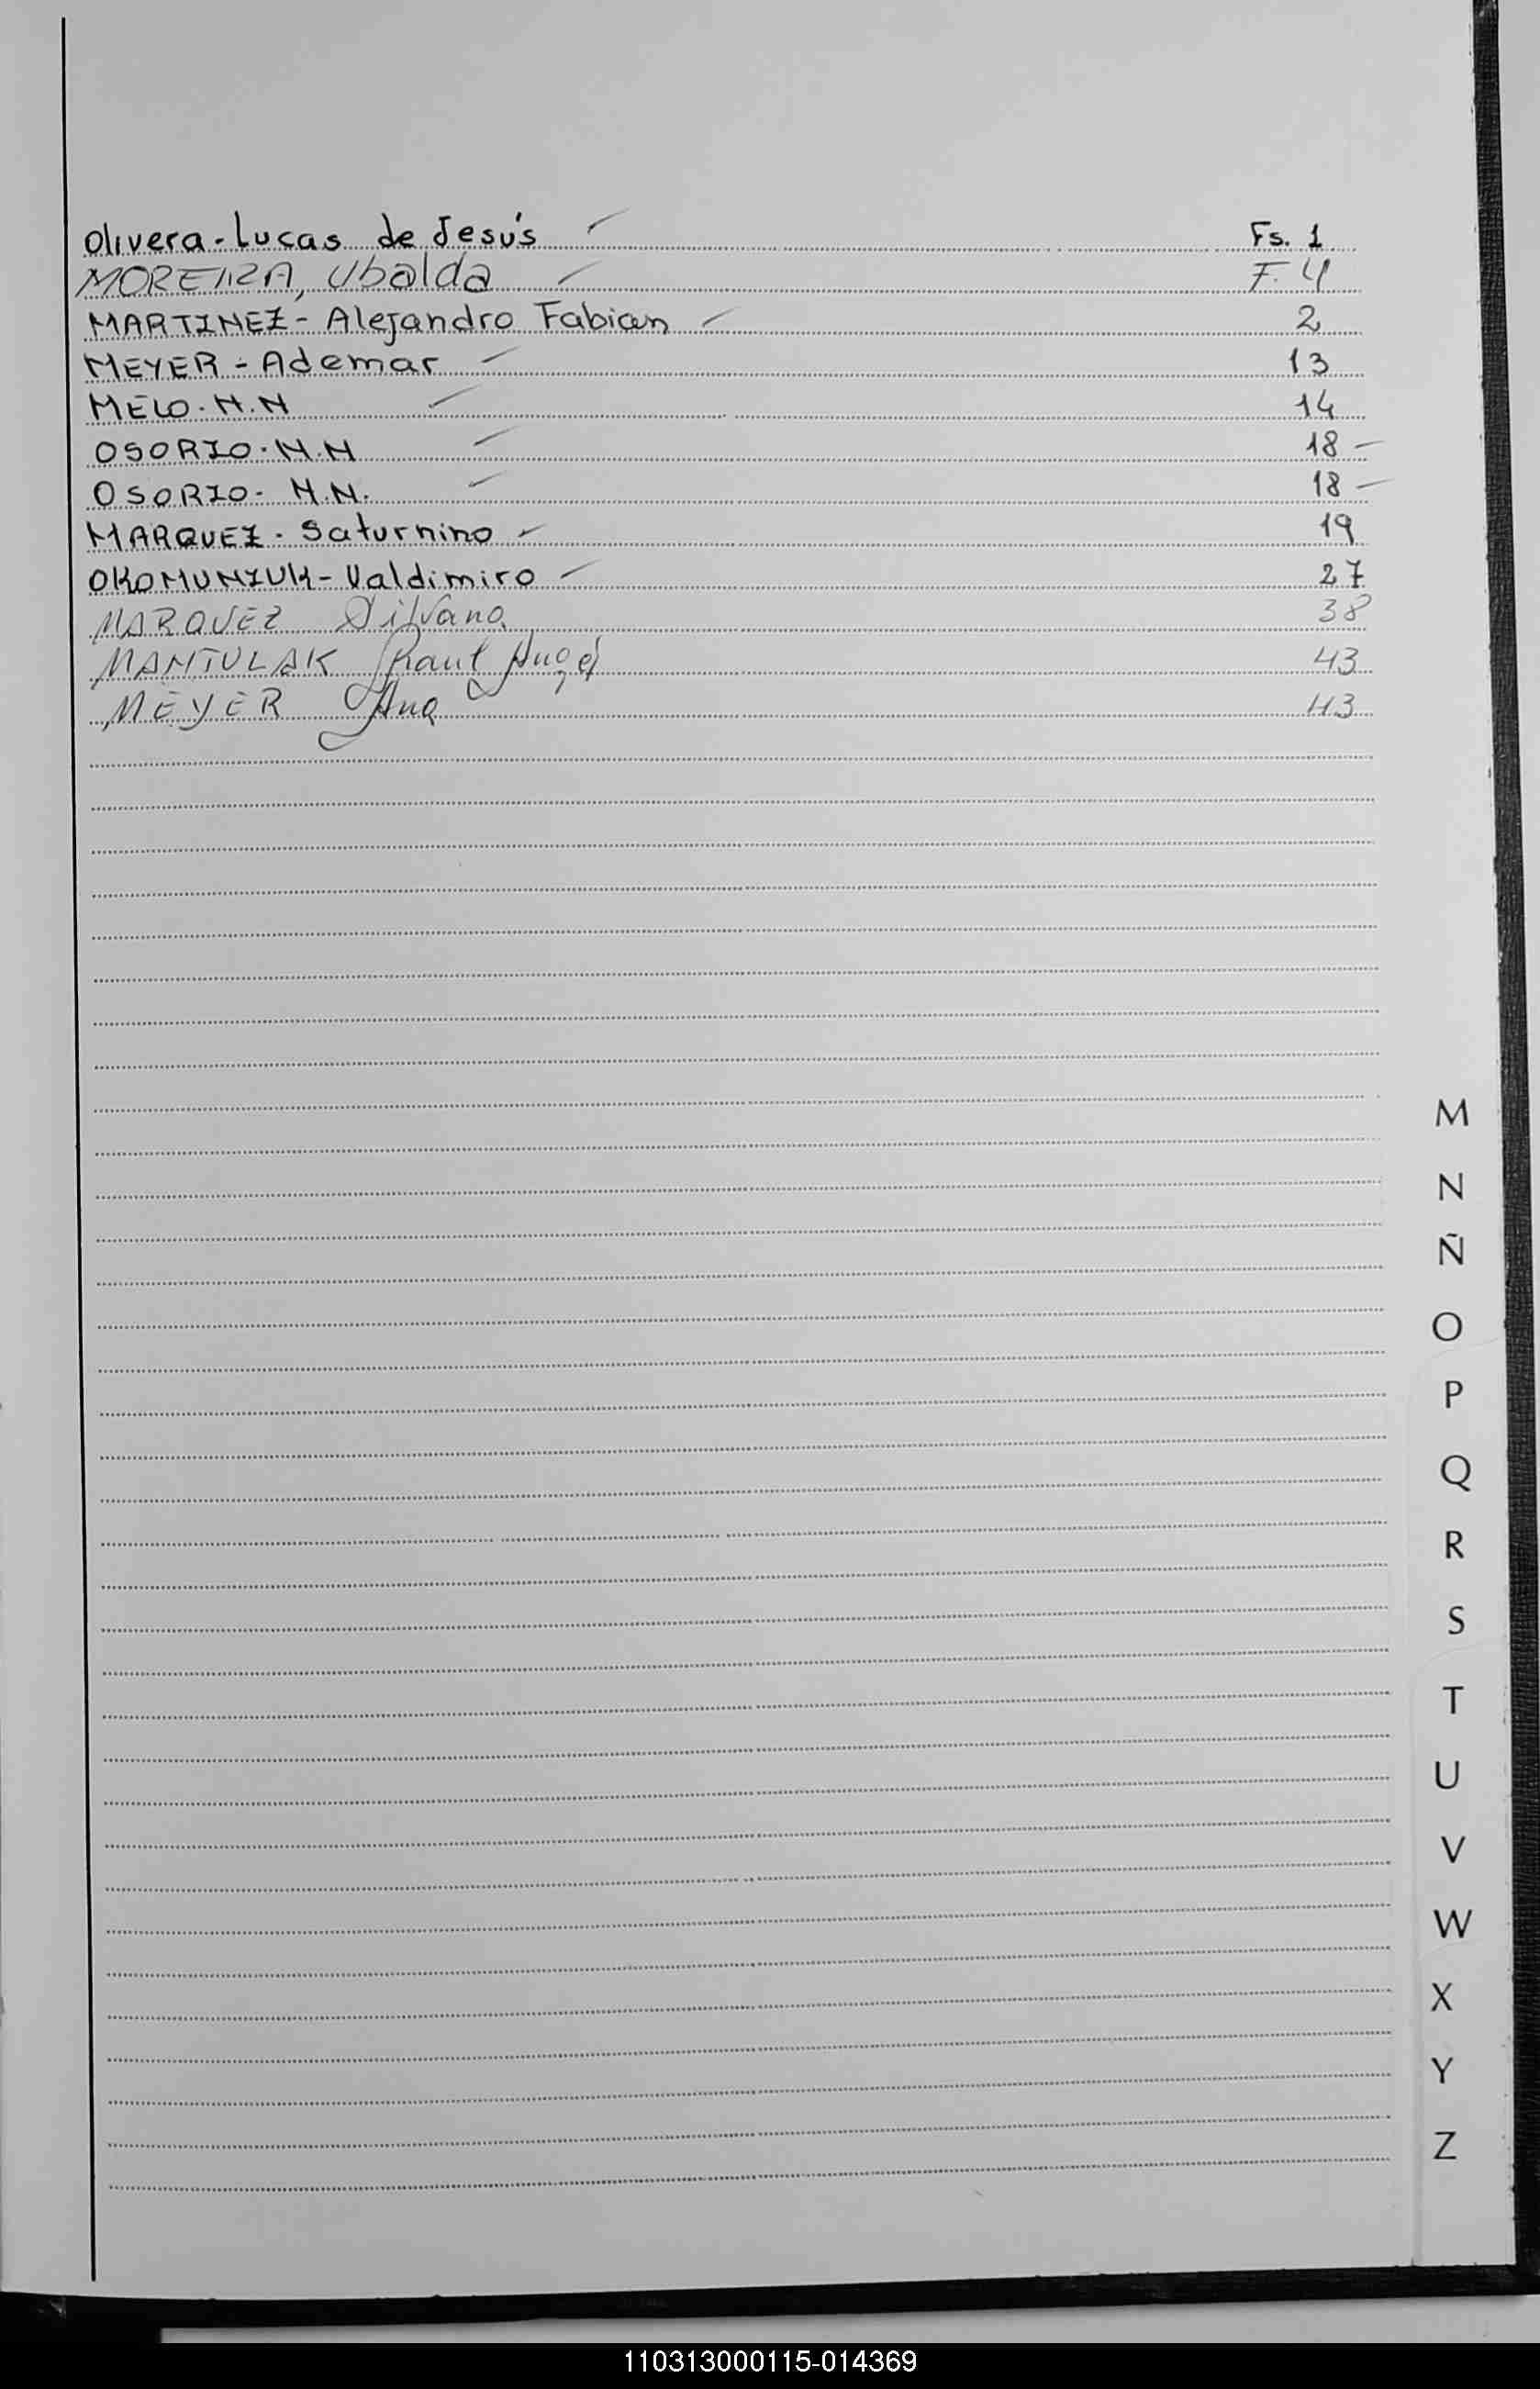 Olivera - Lucas de Jesús Fs. 1
MOREIRA, Ubalda F. 4
MARTINEZ - Alejandro Fabian 2
MEYER - Ademar 13
MELO . N.N 14
OSORIO . N.N 18 -
OSORIO - N.N. 18 -
MARQUEZ - Saturnino 19
OKOMUNIUK - Valdimiro 27
MARQUEZ Silvana 38
MANTULAK Raul Angel 43
MEYER Ana 43
M
N
Ñ
O
P
Q
R
S
T
U
V
W
X
Y
Z
110313000115-014369